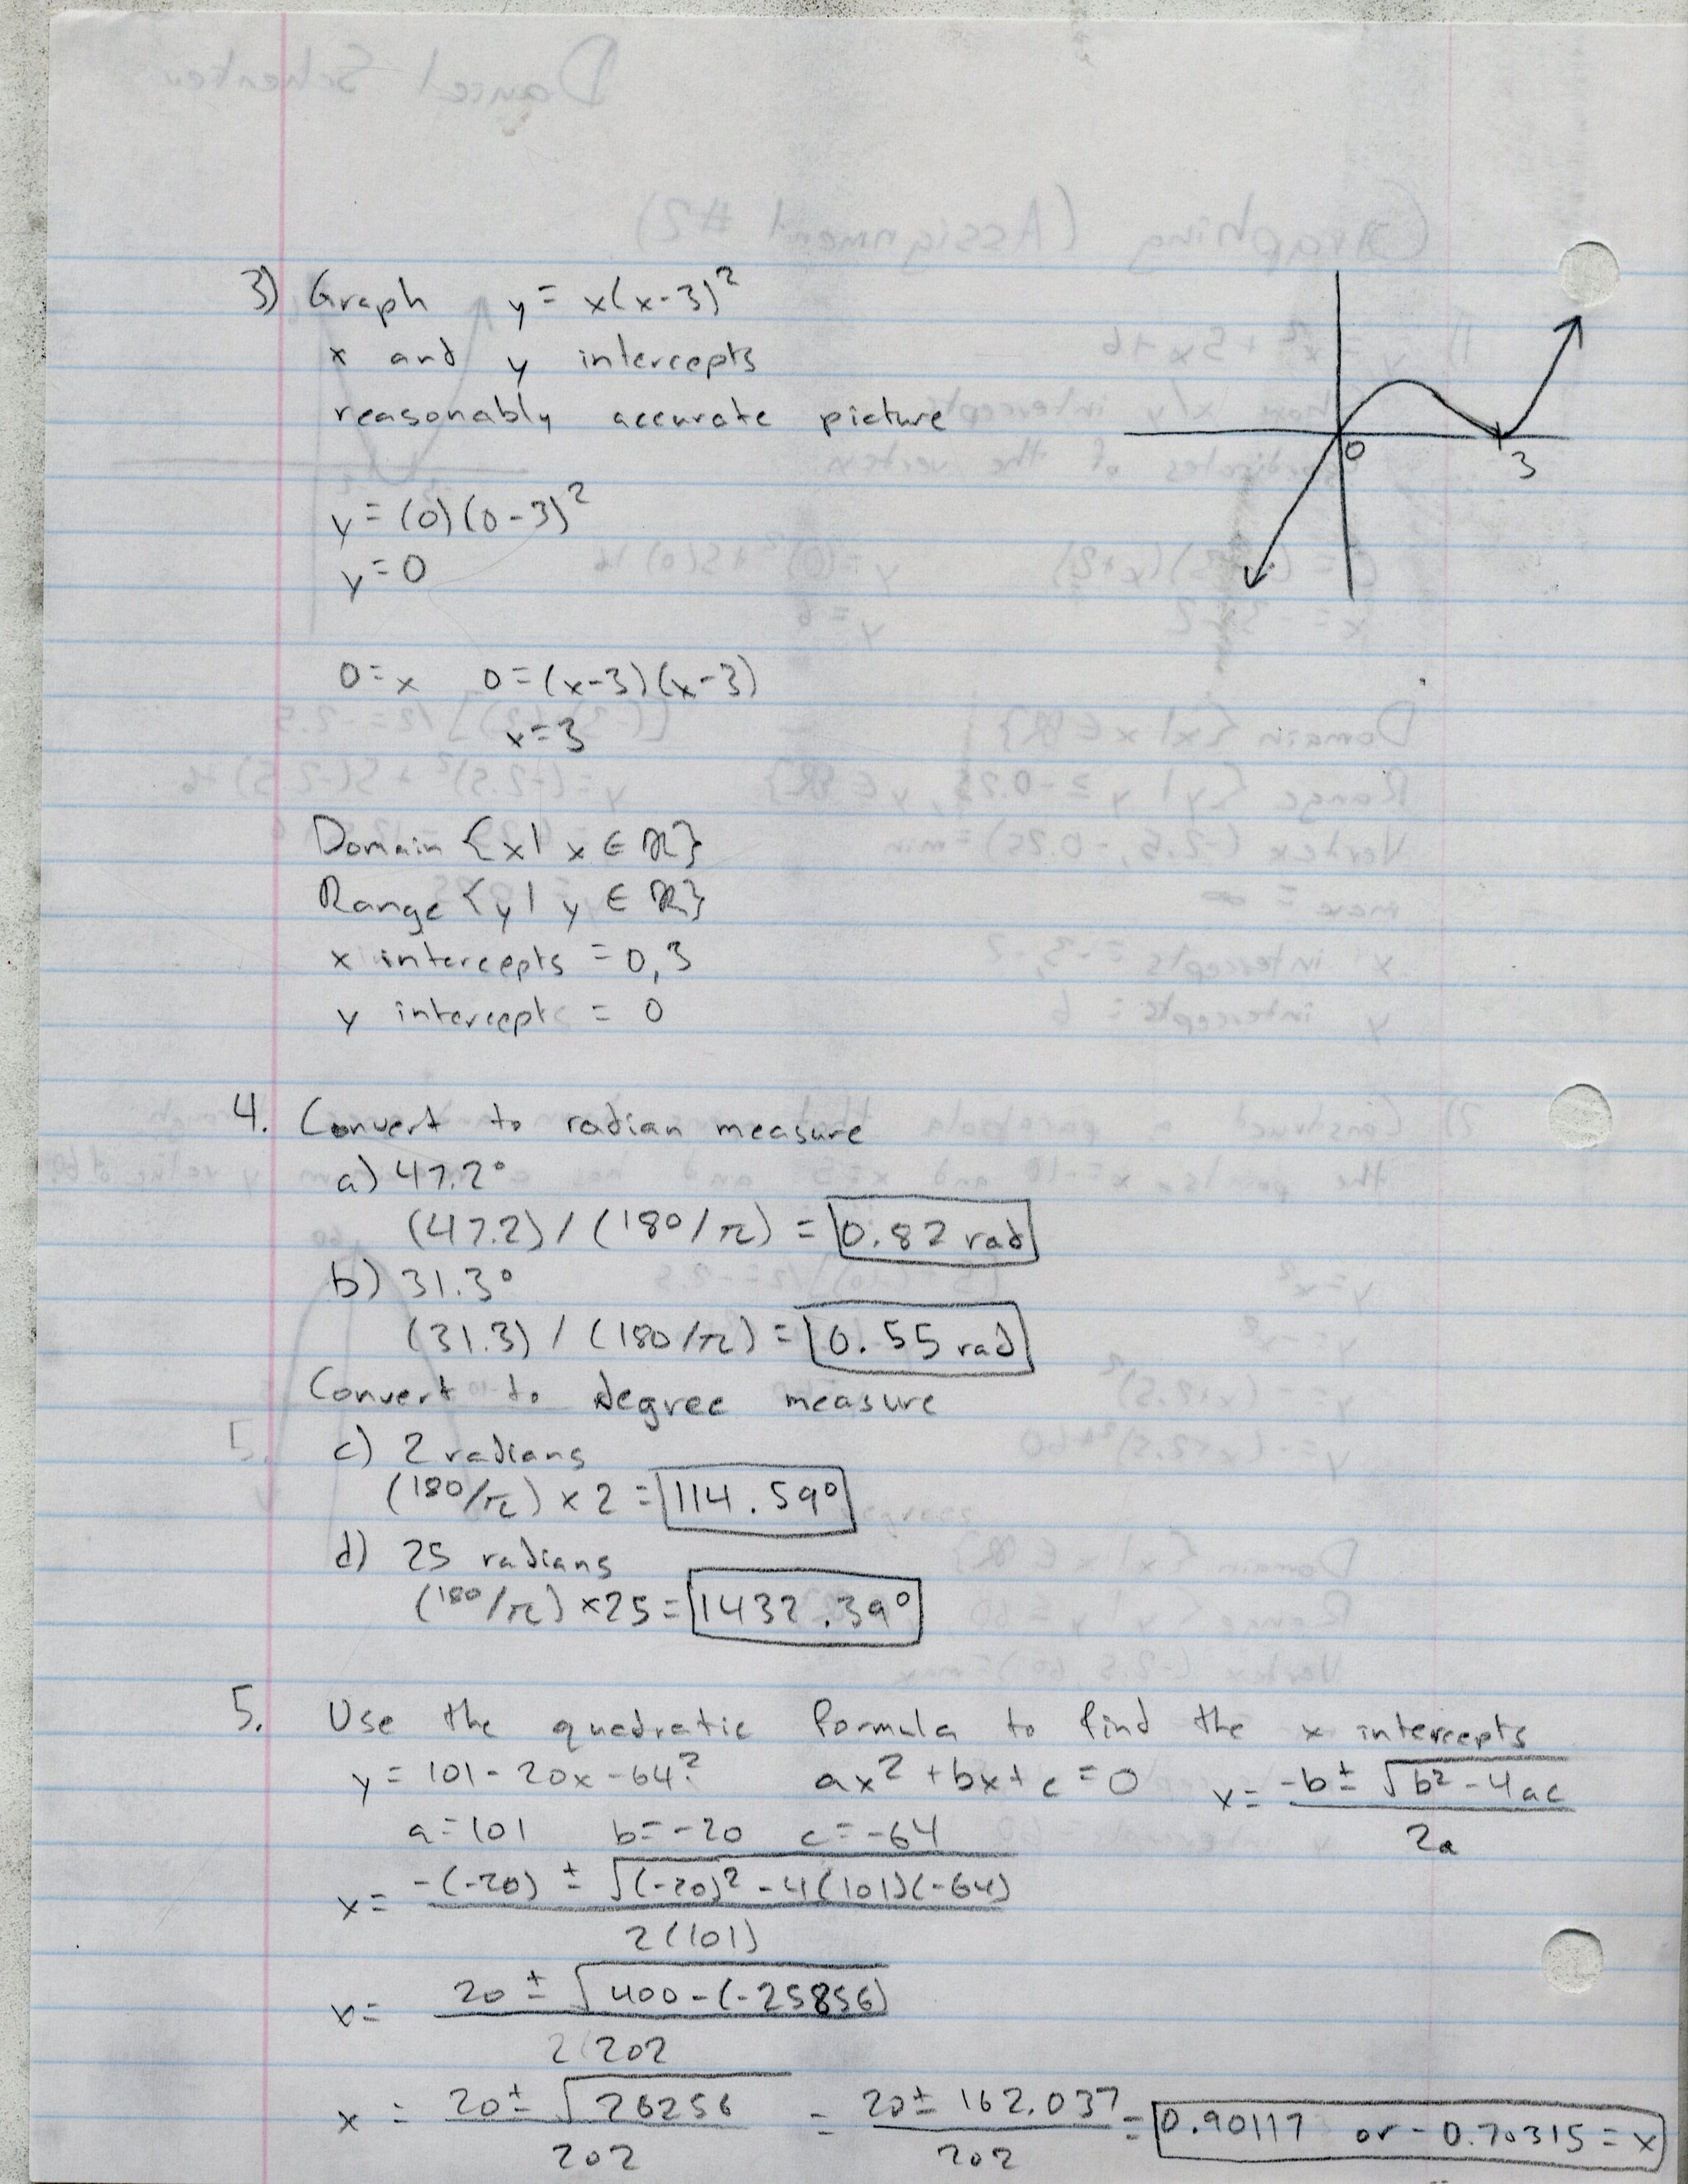 3) Graph y = x(x-3)²
x and y intercepts
reasonably accurate picture
0
3
y = (0)(0-3)²
y = 0
0=x 0=(x-3)(x-3)
x=3
Domain {x| x ∈ ℝ}
Range {y| y ∈ ℝ}
x intercepts = 0, 3
y intercepts = 0
4. Convert to radian measure
a) 47.2°
(47.2) / (180/π) = 0.82 rad
b) 31.3°
(31.3) / (180/π) = 0.55 rad
Convert to degree measure
c) 2 radians
(180/π) × 2 = 114.59°
d) 25 radians
(180/π) × 25 = 1432.39°
5. Use the quadratic formula to find the x intercepts
y = 101 - 20x - 64² ax² + bx + c = 0 x = -b ± √b² - 4ac / 2a
a = 101 b = -20 c = -64
x = -(-20) ± √(-20)² - 4(101)(-64) / 2(101)
x = 20 ± √400 - (-25856) / 202
x = 20 ± √26256 / 202 = 20 ± 162.037 / 202 = 0.90117 or - 0.70315 = x